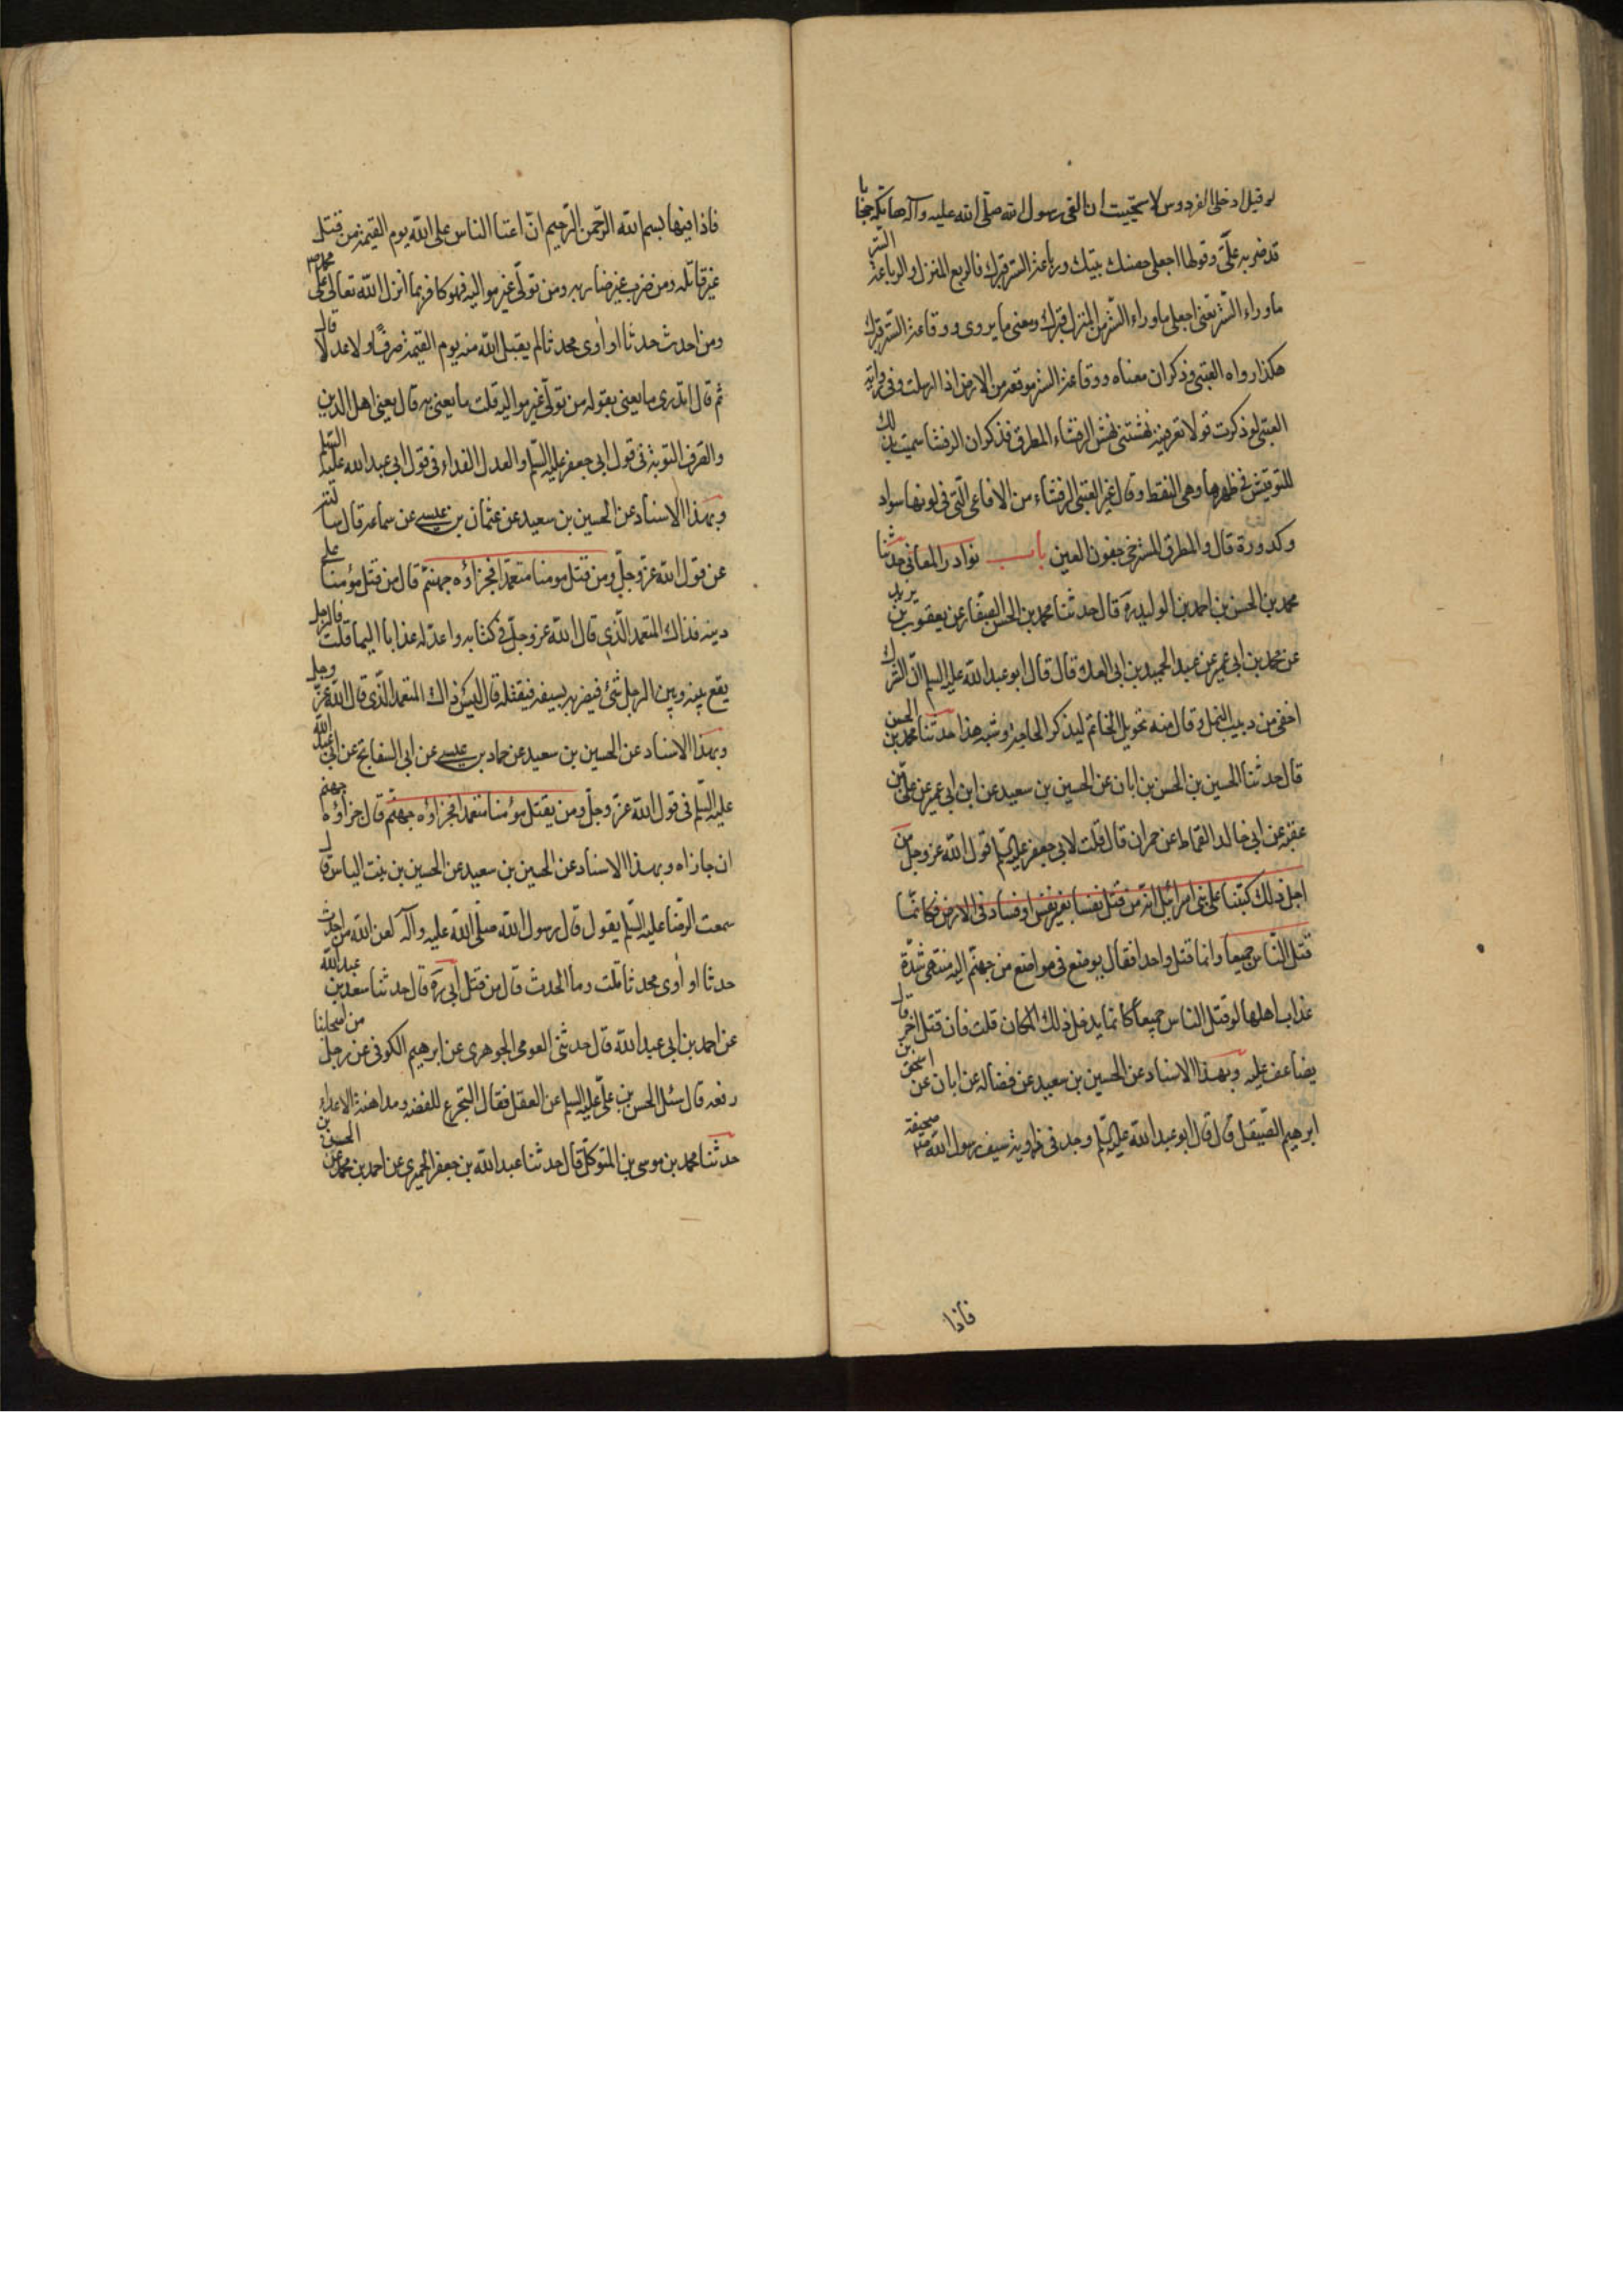 لو قيل ادخلى الفردوس لاستحييت ان القى رسول الله صلّى الله عليه وآله هاتكة حجابا
قد ضربه علىّ وقولها اجعلى حصنك بيتك ورباعة الستر قبرك فالربع المنزل والرباعة الستر
ما وراء السّتر تعنى اجعلى ما وراء السّتر من المنزل قبرك ومعنى ما يروى ووقاعة السّتر قبرك
هكذا رواه القتبى وذكر ان معناه ووقاعة الستر موقعه من الارض اذا ارسلت وفى رواية
القتبى لو ذكرت قولا تعرفينه نهشتنى نهش الرقشاء المطرق فذكر ان الرقشا سميت بذلك
للترقيش فى ظهرها وهى النقط وقال غير القتبى الرقشاء من الافاعى الّتى فى لونها سواد
وكدورة قال والمطرق المسترخى جفون العين باب نوادر المعانى حدثنا
محمد بن الحسن بن احمد بن الوليد ره قال حدثنا محمد بن الحسن الصفار عن يعقوب بن يزيد
عن محمد بن ابى عمير عن عبد الحميد بن ابى العلا قال قال ابو عبد الله عليه السلم انّ الشرك
اخفى من دبيب النمل وقال منه تحويل الخاتم ليذكر الحاجة وشبه هذا حدثنا محمد بن الحسن
قال حدثنا الحسين بن الحسن بن ابان عن الحسين بن سعيد عن ابن ابى عمير عن علىّ بن
عقبة عن ابى خالد القماط عن حمران قال قلت لابى جعفر عليه السّلم قول الله عز وجل من
اجل ذلك كتبنا على بنى اسرائيل انه من قتل نفسا بغير نفس او فساد فى الارض فكانّما
قتل النّاس جميعا وانما قتل واحدا فقال يوضع فى موضع من جهنّم اليه منتهى شدّة
عذاب اهلها لو قتل الناس جميعا كانما يدخل ذلك المكان قلت فان قتل اخر قال
يضاعف عليه وبهذا الاسناد عن الحسين بن سعيد عن فضاله عن ابان عن اسحق بن
ابرهيم الصّيقل قال قال ابو عبد الله عليه السّلم وجد فى ذوابة سيف رسول الله ص صحيفة
فاذا
فاذا فيها بسم الله الرّحمن الرّحيم انّ اعتا الناس على الله يوم القيمة من قتل
غير قاتله ومن ضرب غير ضاربه ومن تولّى غير مواليه فهو كافر بما انزل الله تعالى على محمد ص
ومن احدث حدثا او آوى محدثا لم يقبل الله منه يوم القيمة صرفًا ولا عدلا قال
ثم قال اتدرى ما يعنى بقوله من تولّى غير مواليه قلت ما يعنى به قال يعنى اهل الدين
والصرف التوبة فى قول ابى جعفر عليه السلم والعدل الفداء فى قول ابى عبد الله عليه السّلم
وبهذا الاسناد عن الحسين بن سعيد عن عثمان بن عيسى عن سماعة قال سالته
عن قول الله عز وجلّ ومن قتل مومنا متعمّدا فجزاؤه جهنّم قال من قتل مؤمنا على
دينه فذاك المتعمد الّذى قال الله عز وجلّ فى كتابه واعدّ له عذابا اليما قلت فالرجل
يقع بينه وبين الرجل شئ فيضربه بسيفه فيقتله قال ليس ذاك المتعمد الّذى قال الله عزّ وجل
وبهذا الاسناد عن الحسين بن سعيد عن حماد بن عيسى عن ابى السفاتج عن ابى عبد الله
عليه السلم فى قول الله عزّ وجلّ ومن يقتل مؤمنا متعمدا فجزاؤه جهنّم قال جزاؤه جهنم
ان جازاه وبهذا الاسناد عن الحسين بن سعيد عن الحسين بن بنت الياس قال
سمعت الرّضا عليه السّلم يقول قال رسول الله صلّى الله عليه وآله لعن الله من احدث
حدثا او آوى محدثا قلت وما الحدث قال من قتل أبى ره قال حدثنا سعد بن عبد الله
عن احمد بن ابى عبد الله قال حدثنى العومى الجوهرى عن ابرهيم الكوفى عن رجل من اصحابنا
رفعه قال سئل الحسن بن علىّ عليه السلم عن العقل فقال التجرع للغصة ومداهنة الاعداء
حدثنا محمد بن موسى بن المتوكّل قال حدثنا عبد الله بن جعفر الحميرى عن احمد بن محمد عن الحسن بن